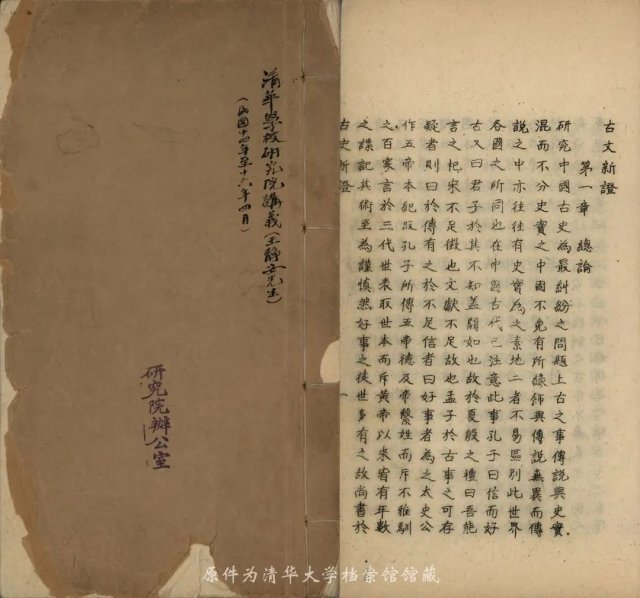 古史新證
第一章　總論
研究中國古史為最糾紛之問題上古之事傳說與史實
混而不分史實之中國不免有所緣飾與傳說無異而傳
說之中亦往往有史實為之素地二者不易區別此世界
各國之所同也在中國古代已注意此事孔子曰信而好
古又曰君子於其不知蓋闕如也故於夏殷之禮曰吾能
言之杞宋不足徵也文獻不足故也孟子於古事之可存
疑者則曰於傳有之於不足信者曰好事者為之太史公
作五帝本紀取孔子所傳五帝德及帝繫姓而斥不雅馴
之百家言於三代世表取世本而斥黃帝以來皆有年數
之諜記其術至為謹慎然好事之徒世多有之故尚書於
古史新證　一
清華學校研究院講義(王靜安先生)
(民國十四年至十六年四月)
研究院辦公室
原件为清华大学档案馆馆藏